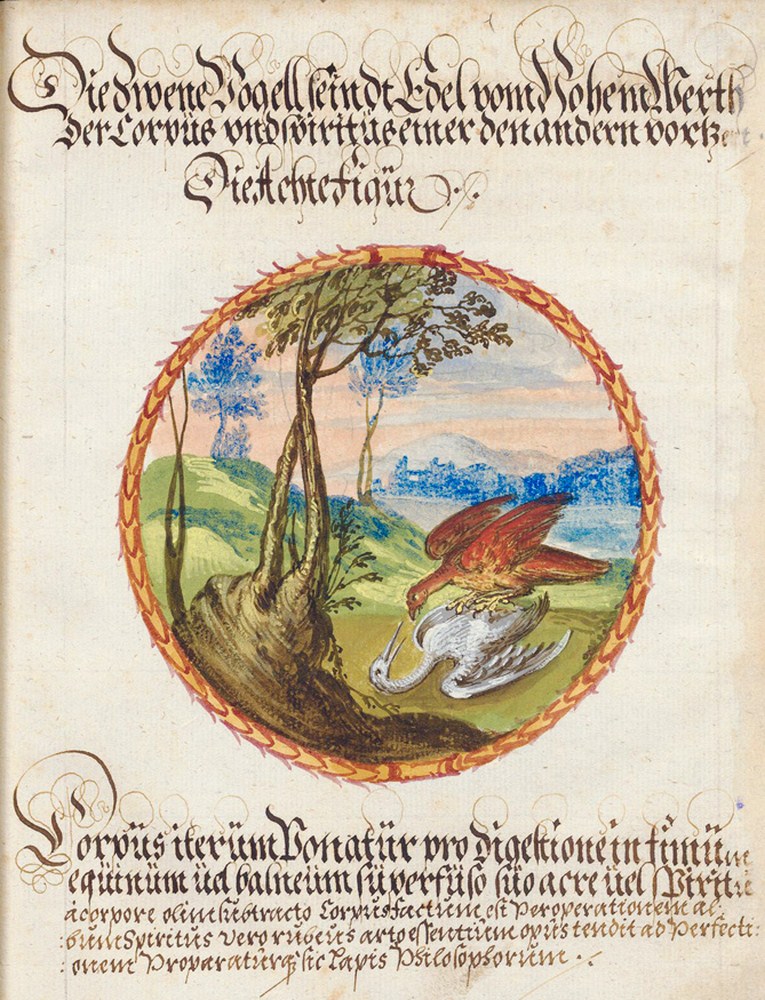 Die Zwene Vogell seindt Edel vom Hohem Werth
Der Corpüs vnd spiritüs einer den andern vorkert.
Die Achte Figür
Corpüs iterüm Ponatür pro digestione in fimüm
eqüinüm üel balneüm süperfüso süo acre üel spiritü
à corpore olim subtracto Corpus factum est Per operationem al:
bum Spiritus vero rubeus arto essentium opus tendit ad Perfecti:
onem Proparaturq́ sic Lapis Philosophorum.